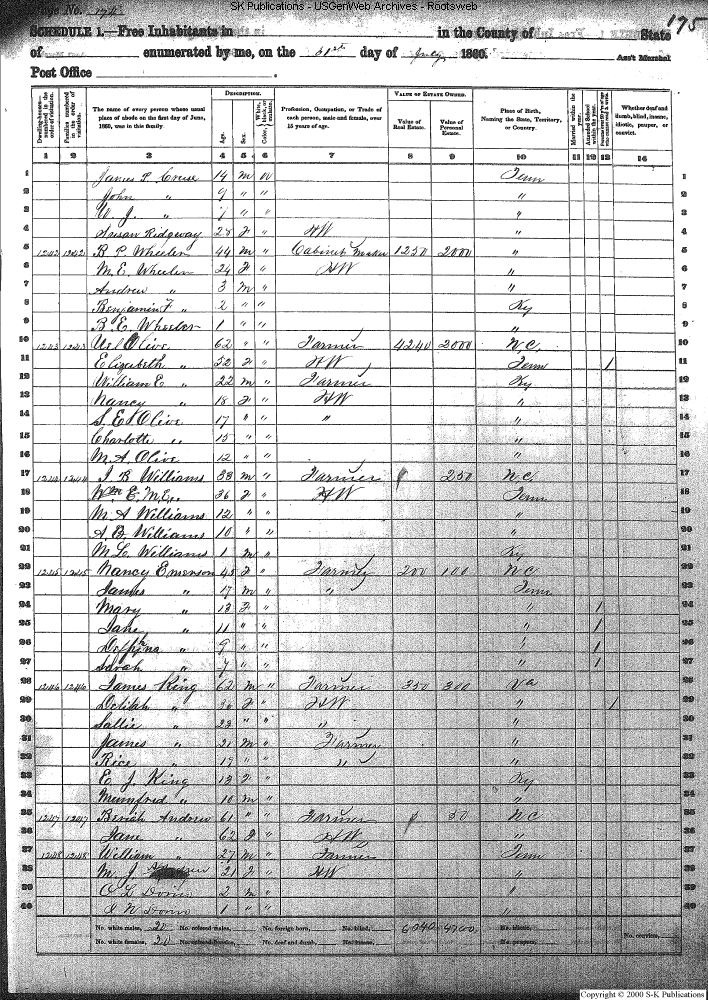 SK Publications - USGenWeb Archives - Rootsweb
Page No. 174
175
SCHEDULE 1.—Free Inhabitants in in the County of State
of enumerated by me, on the 31st day of July 1860. Ass't Marshal
Post Office
Dwelling-houses—numbered in the order of visitation.
Families numbered in the order of visitation.
The name of every person whose usual place of abode on the first day of June, 1860, was in this family.
DESCRIPTION.
Age.
Sex.
Color, White, black, or mulatto.
Profession, Occupation, or Trade of each person, male and female, over 15 years of age.
VALUE OF ESTATE OWNED.
Value of Real Estate.
Value of Personal Estate.
Place of Birth, Naming the State, Territory, or Country.
Married within the year.
Attended School within the year.
Whether deaf and dumb, blind, insane, idiotic, pauper, or convict.
1 2 3 4 5 6 7 8 9 10 11 12 13 14
1 James P Cruse 14 m W Tenn 1
2 John " 9 " " " 2
3 W. J. " 7 " " " 3
4 Susan Ridgeway 28 F " HW " 4
5 1242 1242 B P Wheeler 44 m " Cabinet Maker 1250 2000 " 5
6 M. E. Wheeler 24 F " HW " 6
7 Andrew " 3 m " " 7
8 Benjamin F " 2 " " Ky 8
9 B. E. Wheeler 1 " " " 9
10 1243 1243 Olive 62 " " Farmer 4240 2000 N.C. 10
11 Elizabeth " 52 F " HW Tenn 1 11
12 William E " 22 m " Farmer Ky 12
13 Nancy " 18 F " HW " 13
14 S. E. Olive 17 " " " " 14
15 Charlotte " 15 " " " 15
16 M. A. Olive 12 " " " 16
17 1244 1244 J B Williams 38 m " Farmer 250 N C 17
18 E. M. E. 36 F " HW Tenn 18
19 M. A Williams 12 " " " 19
20 A B Williams 10 " " " 20
21 M. L. Williams 1 m " Ky 21
22 1245 1245 Nancy Emerson 45 F " Farmer 200 100 N C 22
23 James " 17 m " " Tenn 23
24 Mary " 13 F " " 1 24
25 Jane " 11 " " " 1 25
26 " 9 " " " 1 26
27 Sarah " 7 " " " 1 27
28 1246 1246 James King 62 m " Farmer 350 300 Va 28
29 Delilah " F " HW " 1 29
30 Sallie " 23 " " " " 30
31 James " 21 m " Farmer " 31
32 Rice " 19 " " " " 32
33 E J. King 13 F " Ky 33
34 Mumfred " 10 m " " 34
35 1247 1247 Beriah Andrew 61 " " Farmer 50 N C 35
36 Jane " 62 F " HW " 36
37 1248 1248 William " 27 m " Farmer Tenn 37
38 M. J. 21 F " HW " 38
39 2 m " " 39
40 1 " " " 40
No. white males, 20 No. colored males, No. foreign born, No. blind, 6040 4700 No. idiotic,
No. white females, 20 No. colored females, No. deaf and dumb, No. insane, No. paupers, No. convicts,
Copyright © 2000 S-K Publications